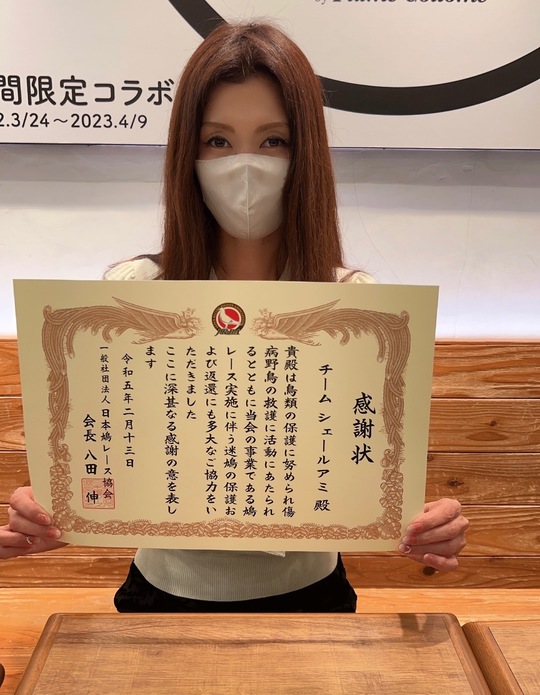 間限定コラボ
2.3/24～2023.4/9
感謝状
チーム シェールアミ 殿
貴殿は鳥類の保護に努められ傷
病野鳥の救護に活動にあたられ
るとともに当会の事業である鳩
レース実施に伴う迷鳩の保護お
よび返還にも多大なご協力をい
ただきました
ここに深甚なる感謝の意を表し
ます
令和五年二月十三日
一般社団法人 日本鳩レース協会
会長 八田 伸